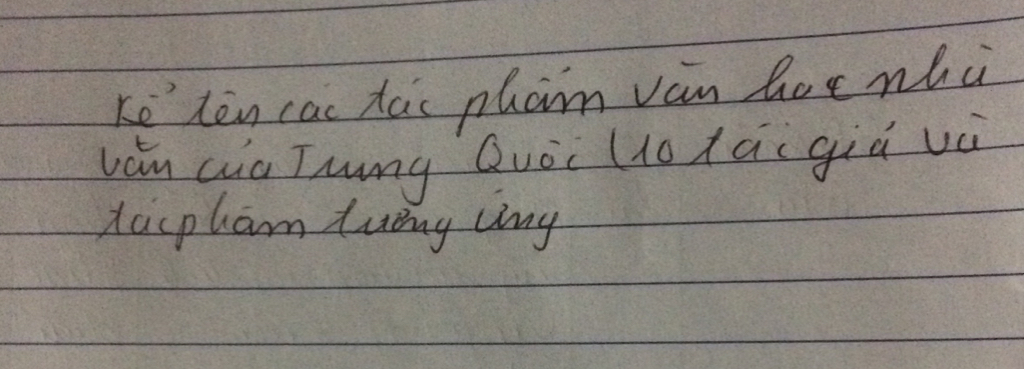 Kể tên các tác phẩm văn học nhà
văn của Trung Quốc (10 tác giả và
tác phẩm tương ứng